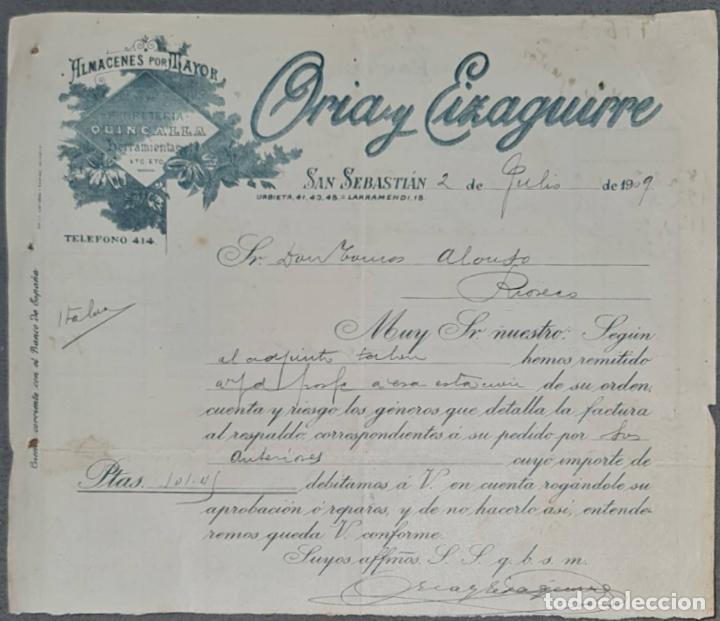 ALMACENES POR MAYOR
FERRETERIA
QUINCALLA
Herramientas
ETC. ETC.
TELEFONO 414
Oria y Eizaguirre
SAN SEBASTIÁN 2 de Julio de 1909
URBIETA, 41, 43, 45 = LARRAMENDI, 15
Sr. Don Tomas Alonso
Rioseco
1 talon
Cuenta corriente con el Banco de España
Muy Sr. nuestro: Según
el adjunto talon hemos remitido
a esa estacion de su orden,
cuenta y riesgo los géneros que detalla la factura
al respaldo, correspondientes á su pedido por sus
anteriores cuyo importe de
Ptas. 101.45 debitamos á V. en cuenta rogándole su
aprobación ó reparos, y de no hacerlo así, entende-
remos queda V. conforme.
Suyos affmos. S. S. q. b. s. m.
Oria y Eizaguirre
todocoleccion.net